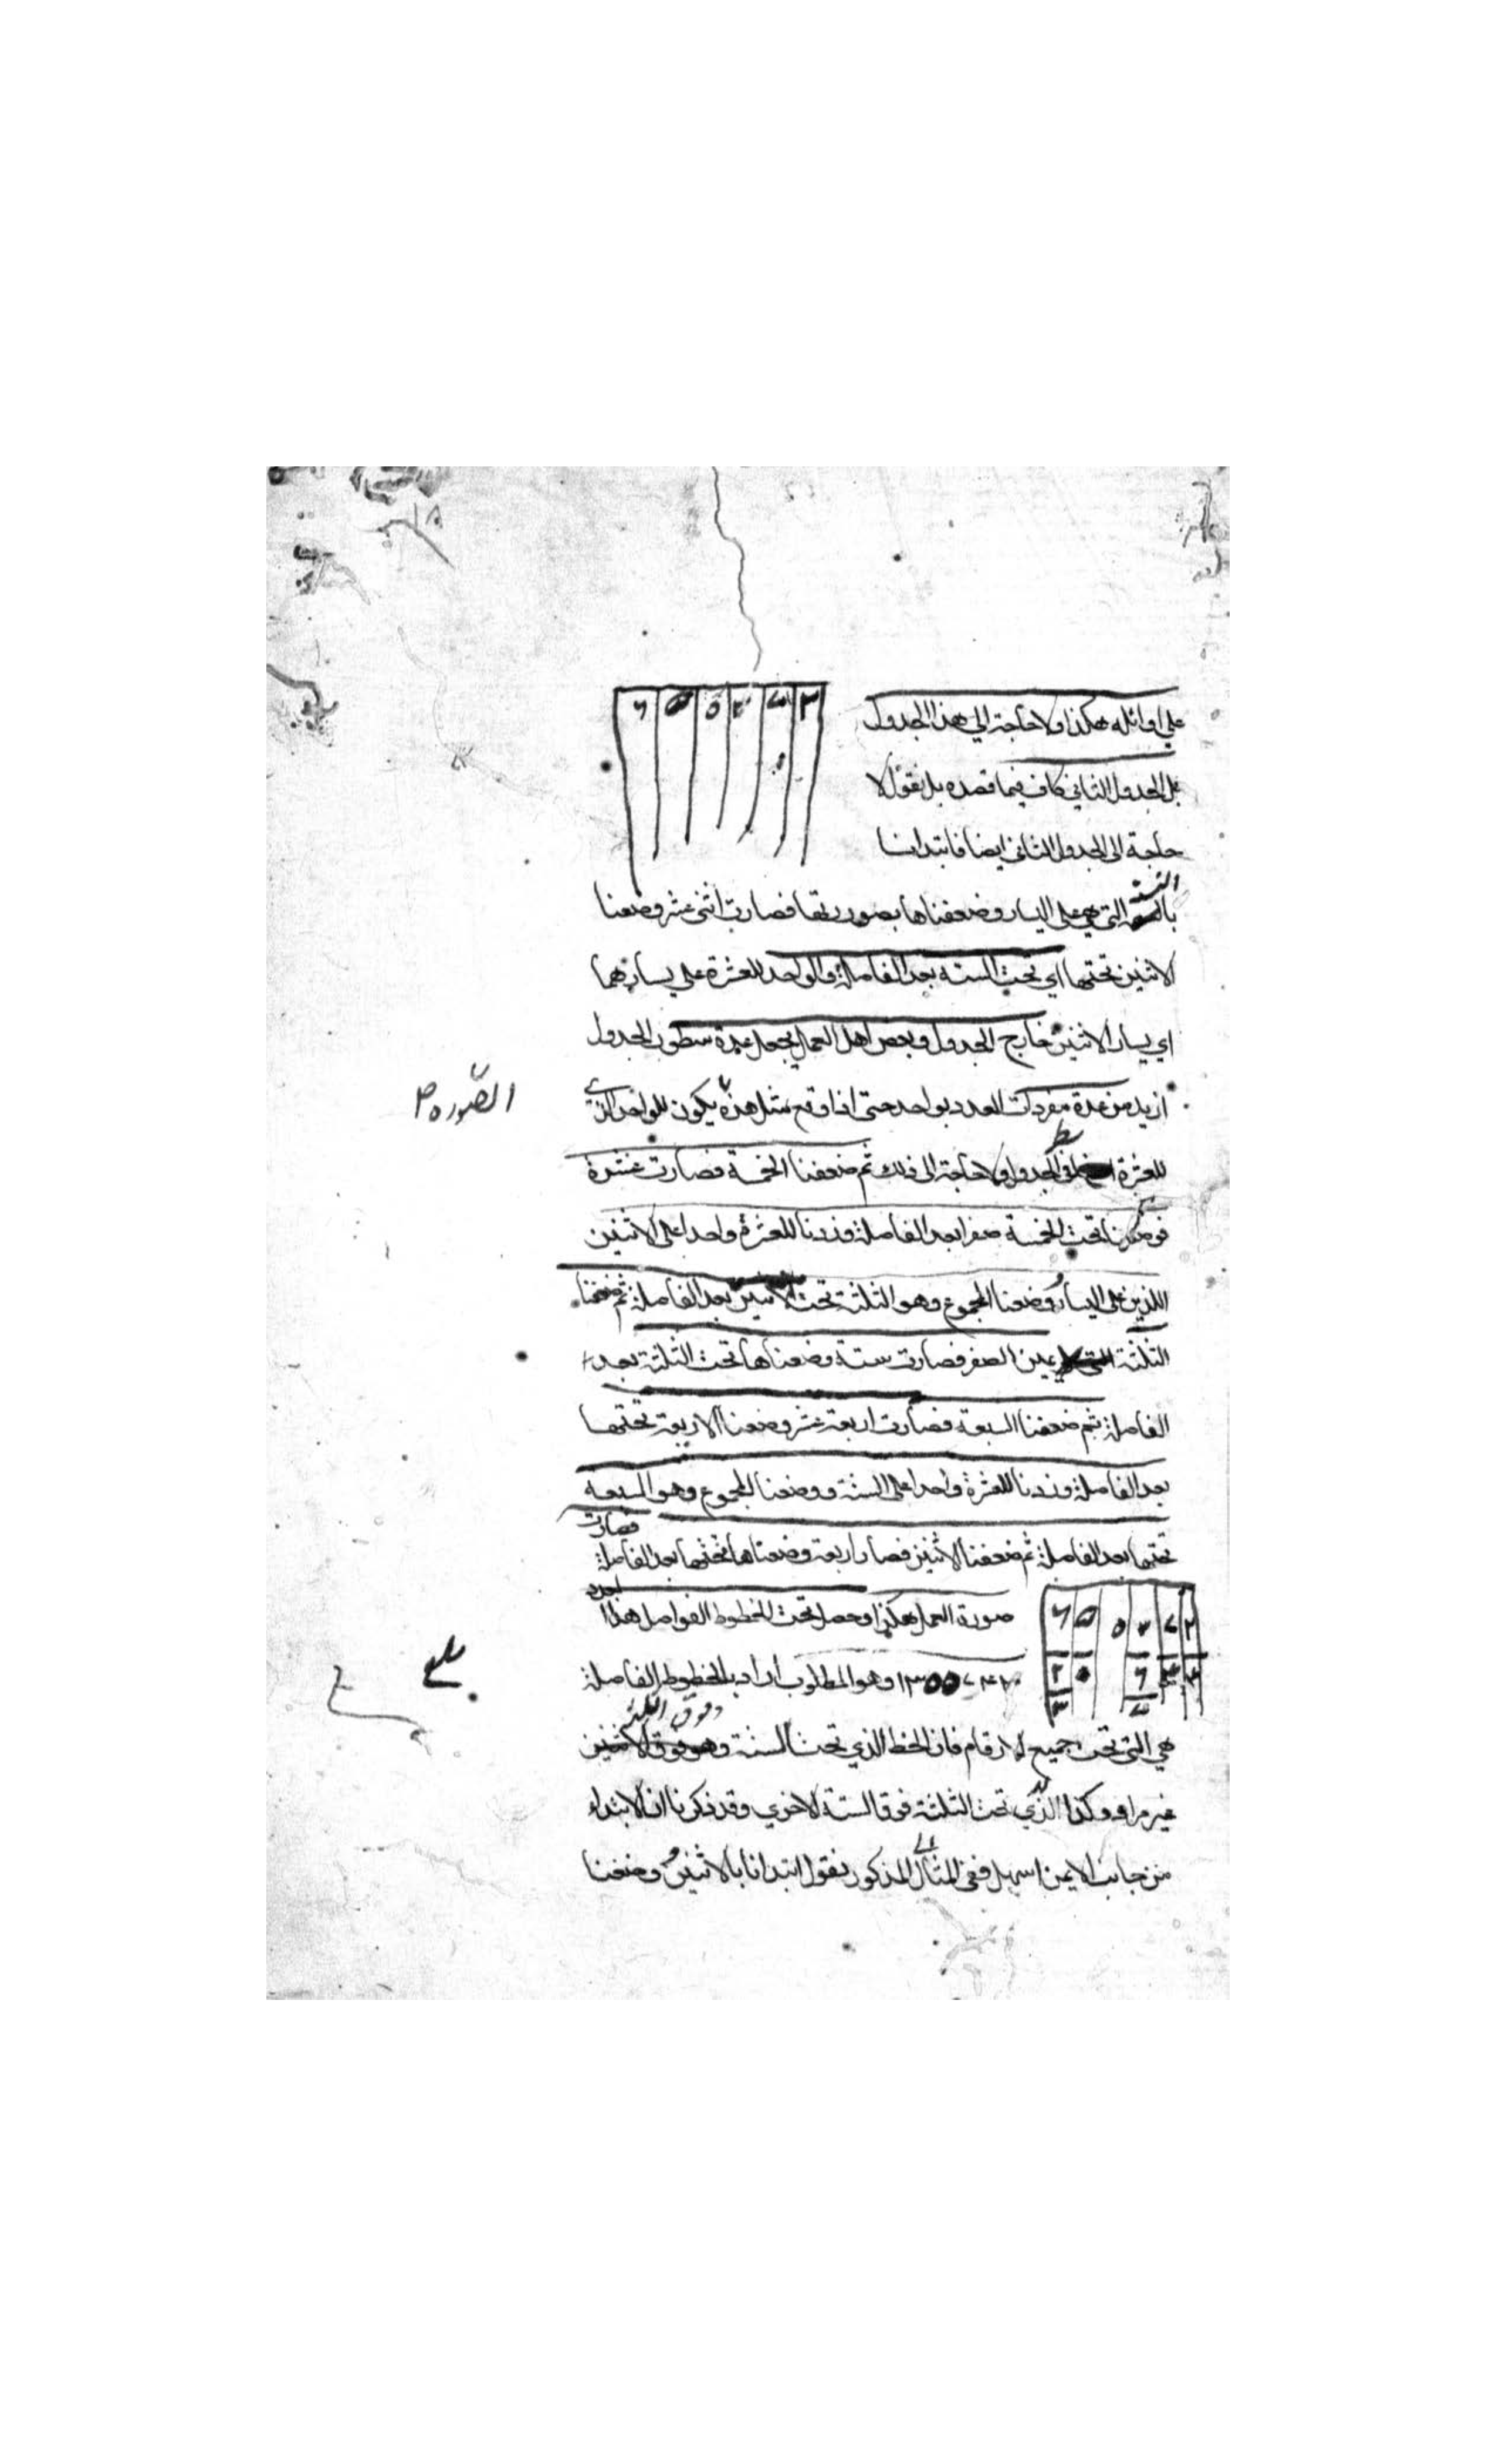 على اوائله هكذا ولا حاجة الى هذا الجدول
بل الجدول الثاني كاف فيما قصده بل نقول لا
حاجة الى الجدول الثاني ايضا فابتدانا
بالستة التي هي على اليسار وضعفناها بصورتها فصارت اثنى عشر وضعنا
الاثنين تحتها اي تحت الستة بعد الفاصلة والواحد للعشرة على يسارهما
اي يسار الاثنين خارج الجدول وبعض اهل العمل يجعل عدة سطون الجدول
ازيد من عدة مفردات العدد بواحد حتى اذا وقع مثل هذه يكون للواحد الذي
الصوره
للعشرة في الجدول ولا حاجة الى ذلك ثم ضعفنا الخمسة فصارت عشرة
فوضعنا تحت الخمسة صفرا بعد الفاصلة وزدنا للعشرة واحدا على الاثنين
اللذين على اليسار وضعنا المجموع وهو الثلثة تحت الاثنين بعد الفاصلة ثم ضعفنا
الثلثة يمين الصفر فصارت ستة وضعناها تحت الثلثة بعد
الفاصلة ثم ضعفنا السبعة فصارت اربعة عشر وضعنا الاربعة تحتها
بعد الفاصلة وزدنا للعشرة واحدا على الستة ووضعنا المجموع وهو السبعة
تحتها بعد الفاصلة ثم ضعفنا الاثنين فصار اربعة وضعناها تحتها بعد الفاصلة
فصارت
صورة العمل هكذا وحصل تحت الخطوط الفواصل هذا
وهو المطلوب اراد بالخطوط الفاصلة
هي التي تحت جميع الارقام فان الخط الذي تحت الستة وهو فوق الاثنين
وفوق الثلثة
غير مراد وكذا الذي تحت الثلثة فوق الستة الاخرى وقد ذكرنا ان الابتداء
من جانب الايمن اسهل ففي المثال المذكور نقول ابتدانا بالاثنين وضعفنا